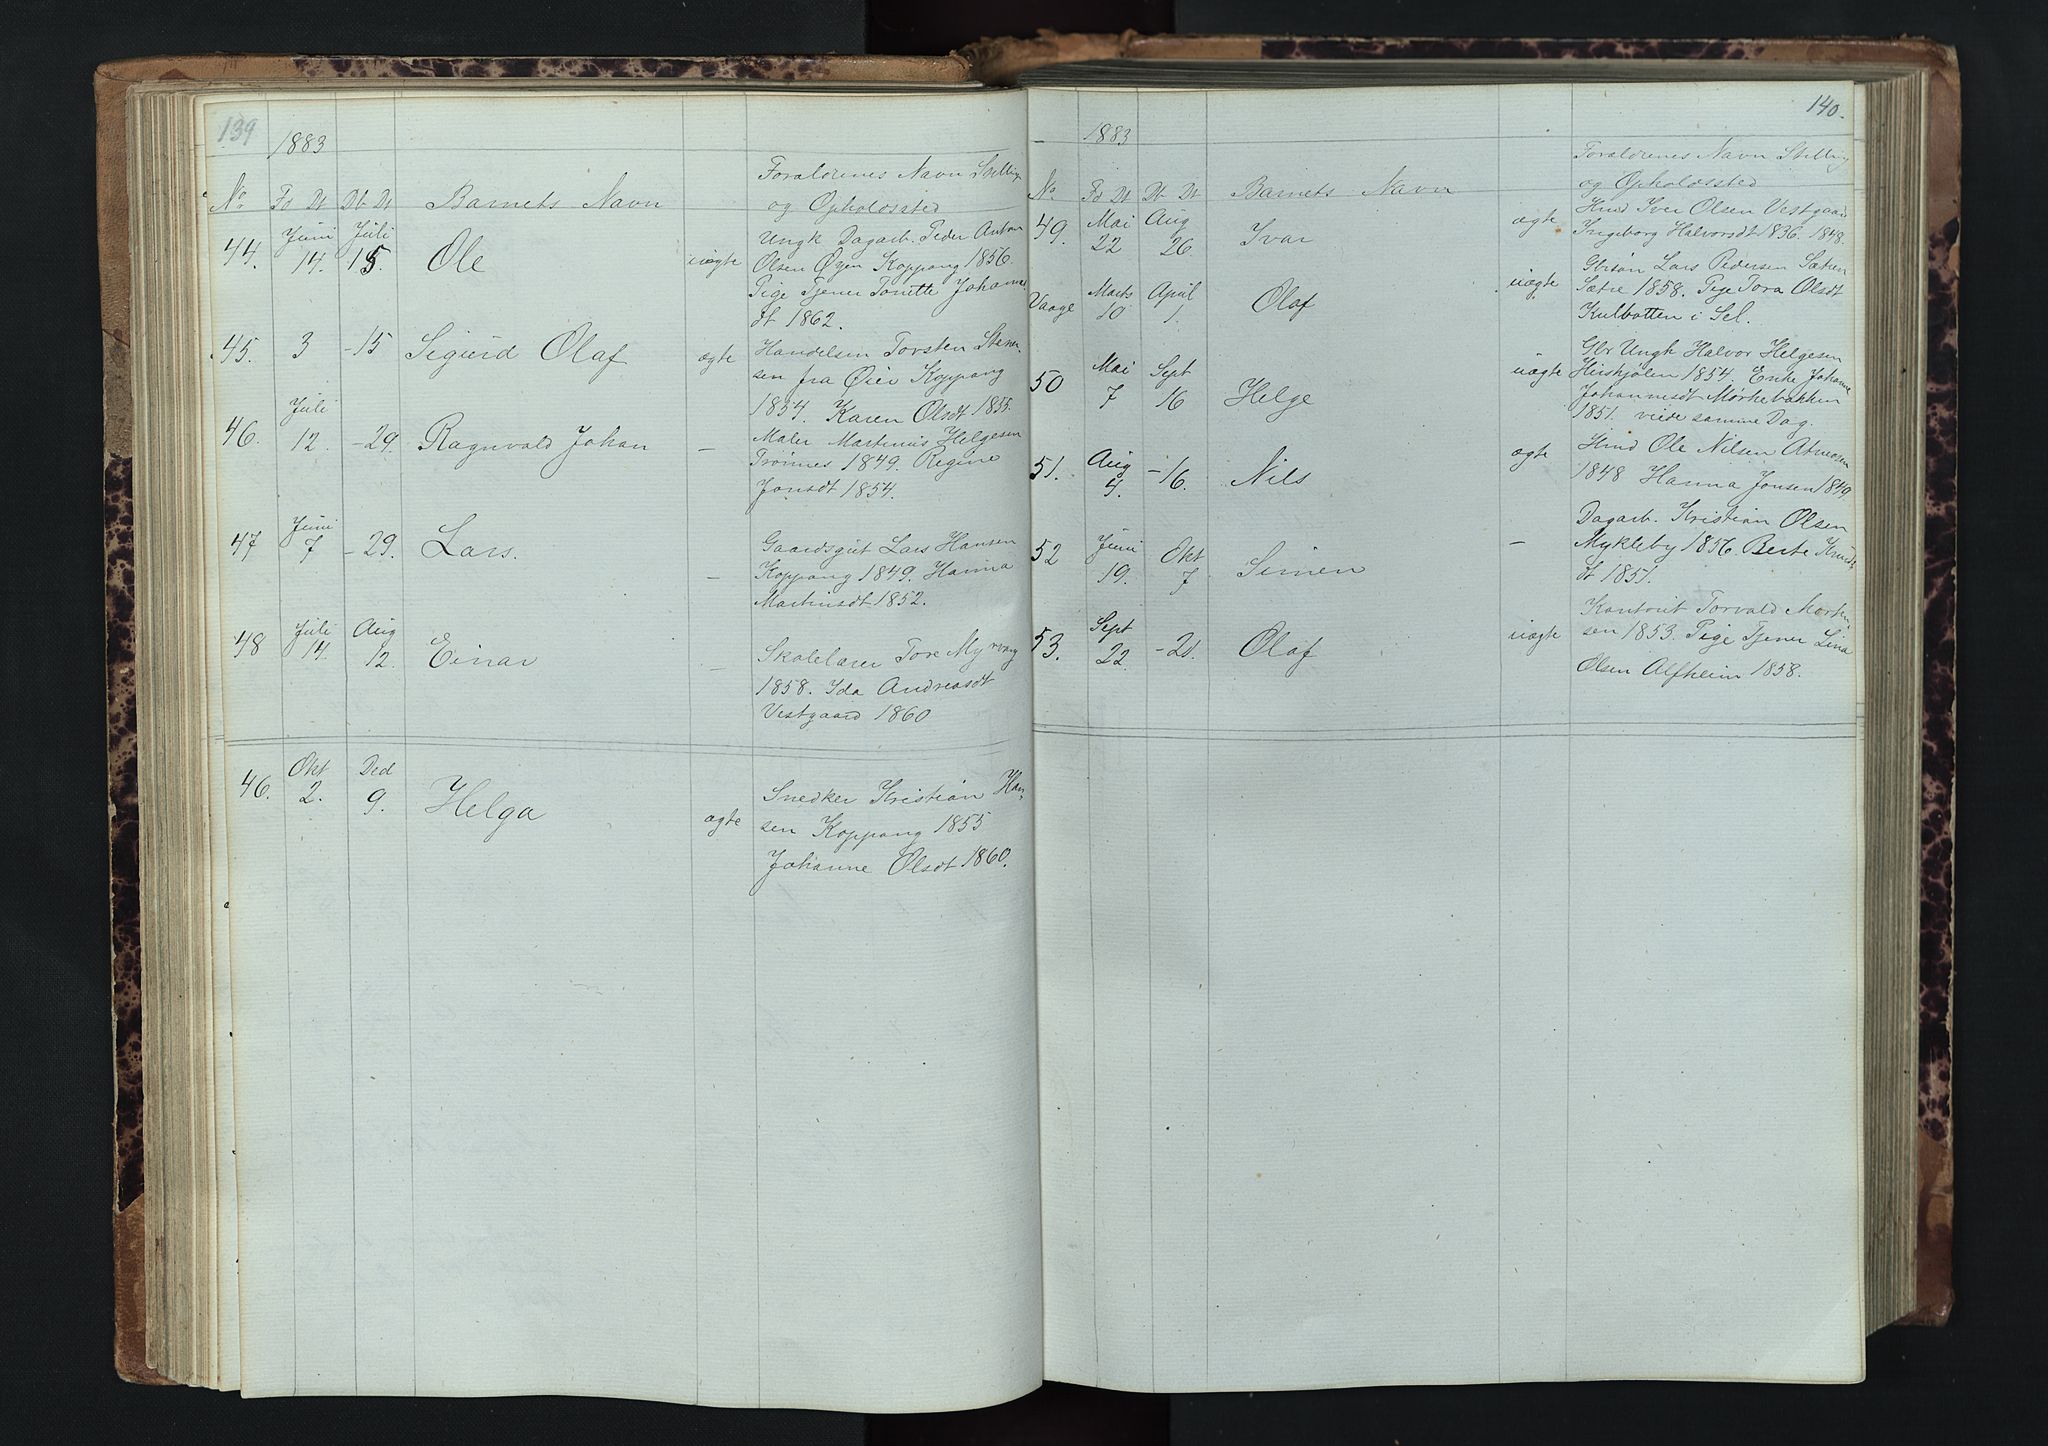 139
1883
No. Fd Dt Db Dt Barnets Navn Forældrenes Navn Stilling
og Opholdssted
44. Juni 14. Juli 15. Ole uægte Ungk Dagarb. Peder Anton
Olsen Øyen Koppang 1856.
Pige Tjener Tonette Johannes
dt 1862.
45. 3 -15 Sigurd Olaf ægte Handelsm Torsten Stener-
sen fra Øier Koppang
1854. Karen Olsdt 1855.
46. Juli 12. -29. Ragnvald Johan — Maler Martinius Helgesen
Trønnes 1849. Regine
Jonsdt 1854.
47 Juni 7 -29. Lars. — Gaardsgut Lars Hansen
Koppang 1849. Hanna
Martinsdt 1852.
48 Juli 14. Aug 12. Einar — Skolelærer Tore Myrvang
1858. Ida Andreasdt
Vestgaard 1860
46. Okt 2. Ded 9. Helga ægte Snedker Kristian Han-
sen Koppang 1855
Johanne Olsdt 1860.
140.
1883
No. Fd Dt Db Dt Barnets Navn Forældrenes Navn Stilling
og Opholdssted
49. Mai 22 Aug 26. Ivar ægte Hmd Iver Olsen Vestgaard
Ingeborg Halvorsdt 1836. 1848.
Vaage Marts 10 April 1. Olaf uægte Gbrsøn Lars Pedersen Sætren
Sætre 1858. Pige Tora Olsdt
Kulbotten i Sel.
50 Mai 7 Sept 16 Helge uægte Gbr Ungk Halvor Helgesen
Hirskjølen 1854. Enke Johanne
Johannesdt Mørkebakken
1851. viede samme Dag.
51. Aug 4. -16. Nils ægte Hmd Ole Nilsen Atneosen
1848 Hanna Jonsen 1849.
52 Juni 19. Okt 7 Simen — Dagarb. Kristian Olsen
Mykleby 1856. Berte Knuds-
dt 1851.
53. Sept 22. -21. Olaf uægte Kontorist Torvald Morten-
sen 1853. Pige Tjener Lina
Olsen Alfheim 1858.